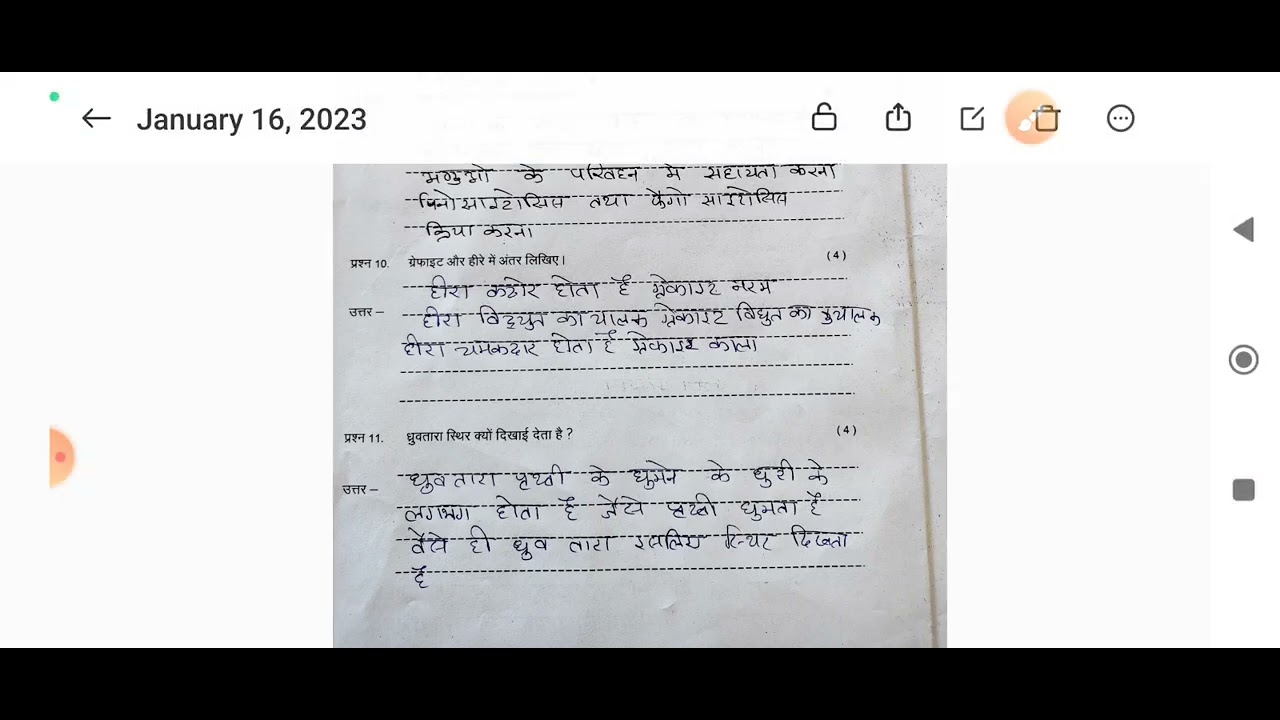 January 16, 2023
के परिवहन मे सहायता करना
पिनोसाइटोसिस तथा फैगो साइटोसिस
क्रिया करना
प्रश्न 10. ग्रेफाइट और हीरे में अंतर लिखिए। (4)
हीरा कठोर होता है ग्रेफाइट नरम
उत्तर –
हीरा विद्युत का चालक ग्रेफाइट विधुत का कुचालक
हीरा चमकदार होता है ग्रेफाइट काला
प्रश्न 11. ध्रुवतारा स्थिर क्यों दिखाई देता है ? (4)
ध्रुव तारा पृथ्वी के घुमने के धुरी के
उत्तर –
लगभग होता है जैसे पृथ्वी घुमता है
वैसे ही ध्रुव तारा इसलिए स्थिर दिखता
है